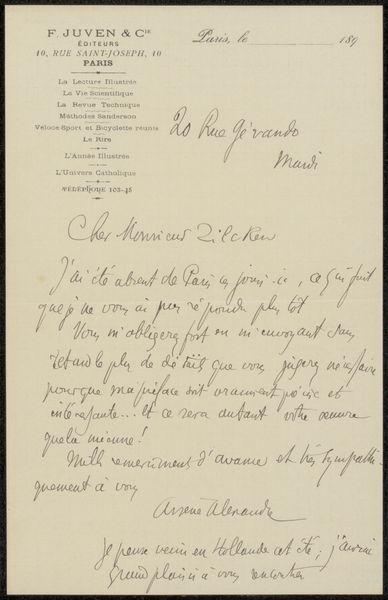 F. JUVEN & Cie
ÉDITEURS
10, RUE SAINT-JOSEPH, 10
PARIS
La Lecture Illustrée
La Vie Scientifique
La Revue Technique
Méthodes Sanderson
Véloce-Sport et Bicyclette réunis
Le Rire
L'Année Illustrée
L'Univers Catholique
TÉLÉPHONE 103-45
Paris, le 189
20 Rue Gévando
Mardi
Cher Monsieur Zilcken
J'ai été absent de Paris ces jours-ci, ce qui fait
que je ne vous ai pas répondu plus tôt
Vous m'obligerez fort en m'envoyant sans
retard le plus de détails que vous jugerez nécessaire
pour que ma préface soit vraiment précise et
intéressante... et ce sera autant votre œuvre
que la mienne!
Mille remerciments d'avance et très sympathi
quement à vous
Arsène Alexandre
Je pense venir en Hollande cet été; j'aurai
grand plaisir à vous rencontrer